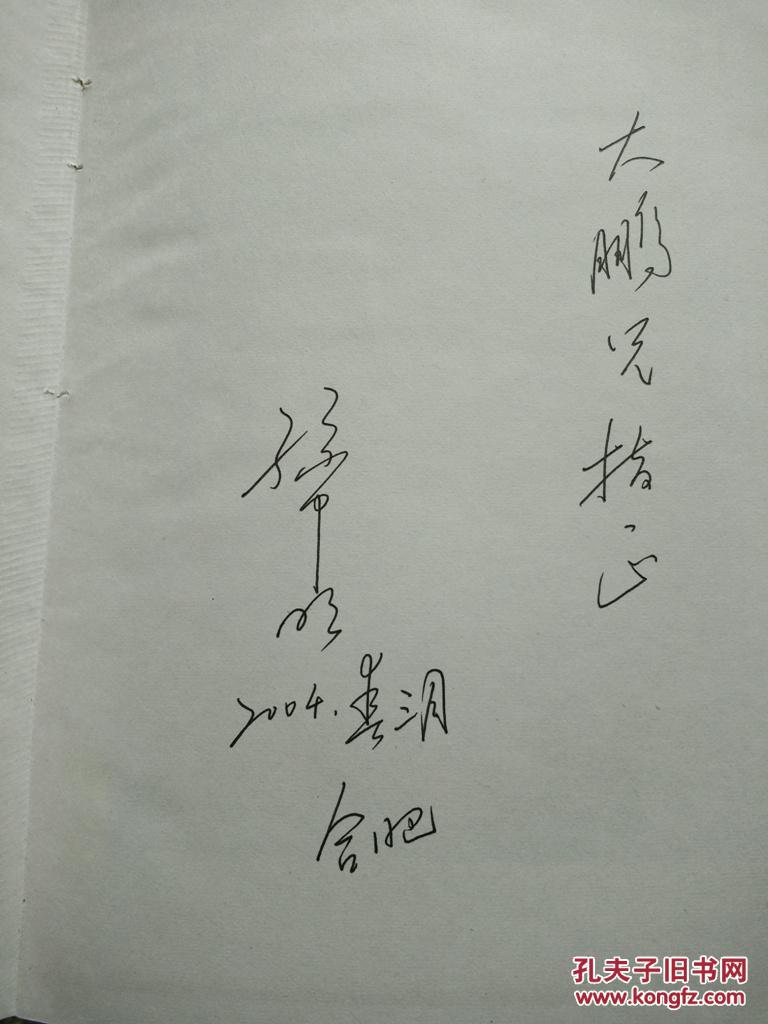 大鹏兄指正
孙中明
2004.春三月
合肥
孔夫子旧书网
www.kongfz.com